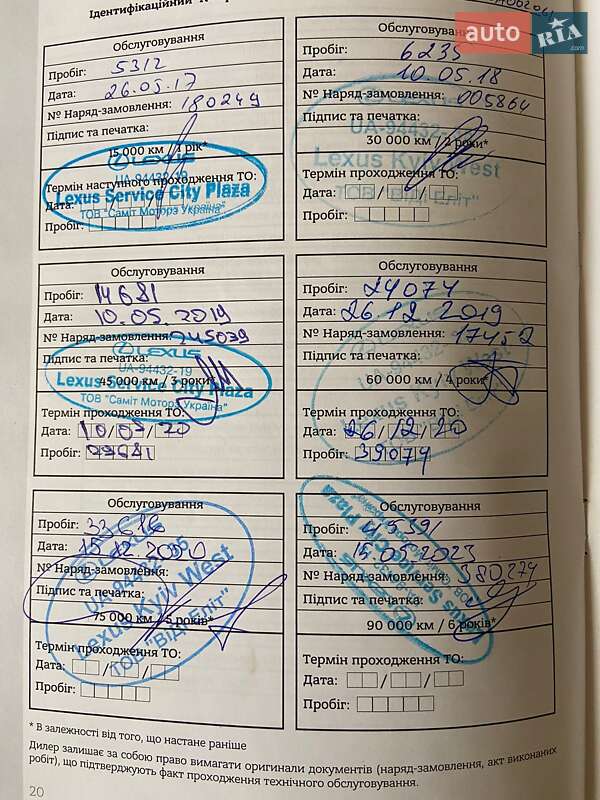 Ідентифікаційний
auto RIA
.com
Обслуговування
Пробіг: 5312
Дата: 26.05.17
№ Наряд-замовлення: 180249
Підпис та печатка:
15 000 км / 1 рік*
LEXUS
UA-94432-19
Lexus Service City Plaza
ТОВ "Саміт Моторз Україна"
Термін наступного проходження ТО:
Дата:
Пробіг:
Обслуговування
Пробіг: 6235
Дата: 10.05.18
№ Наряд-замовлення: 005864
Підпис та печатка:
30 000 км / 2 роки*
LEXUS
UA-94432-
Lexus Kyiv West
ТОВ "ВІДІ Еліт"
Термін проходження ТО:
Дата:
Пробіг:
Обслуговування
Пробіг: 14681
Дата: 10.05.2019
№ Наряд-замовлення: 245039
Підпис та печатка:
45 000 км / 3 роки*
LEXUS
UA-94432-19
Lexus Service City Plaza
ТОВ "Саміт Моторз Україна"
Термін проходження ТО:
Дата: 10/05/20
Пробіг:
Обслуговування
Пробіг: 24074
Дата: 26.12.2019
№ Наряд-замовлення: 17452
Підпис та печатка:
60 000 км / 4 роки*
UA-94432-
Lexus Kyiv West
Термін проходження ТО:
Дата: 26/12/20
Пробіг: 39074
Обслуговування
Пробіг: 33616
Дата: 15.12.2020
№ Наряд-замовлення:
Підпис та печатка:
75 000 км / 5 років*
UA-94432-05
Lexus Kyiv West
ТОВ "ВІДІ Еліт"
Термін проходження ТО:
Дата:
Пробіг:
Обслуговування
Пробіг: 41539
Дата: 15.05.2023
№ Наряд-замовлення: 380274
Підпис та печатка:
90 000 км / 6 років*
Lexus Service City Plaza
Термін проходження ТО:
Дата:
Пробіг:
* В залежності від того, що настане раніше
Дилер залишає за собою право вимагати оригинали документів (наряд-замовлення, акт виконаних
робіт), що підтверджують факт проходження технічного обслуговування.
20